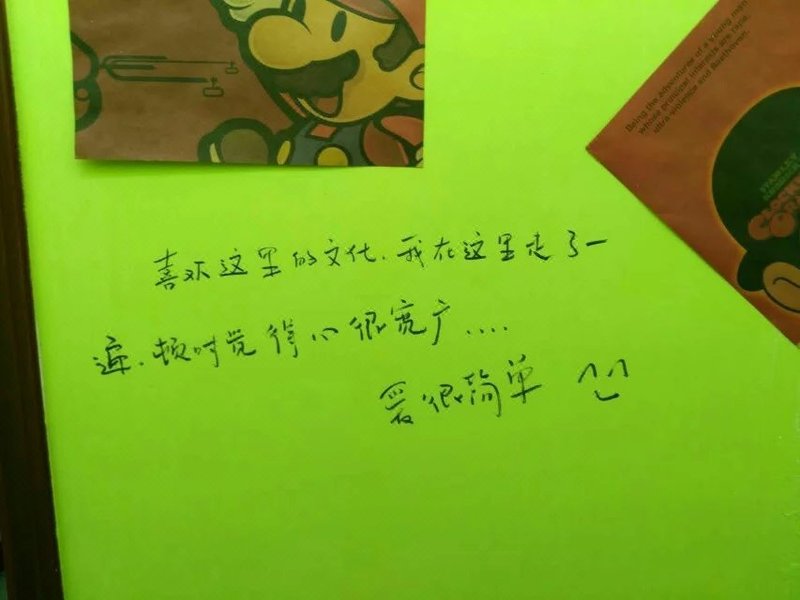 Being the adventures of a young man
whose principal interests are rape,
ultra-violence and Beethoven.
STANLEY
喜欢这里的文化.我在这里走了一
遍.顿时觉得心很宽广....
爱很简单